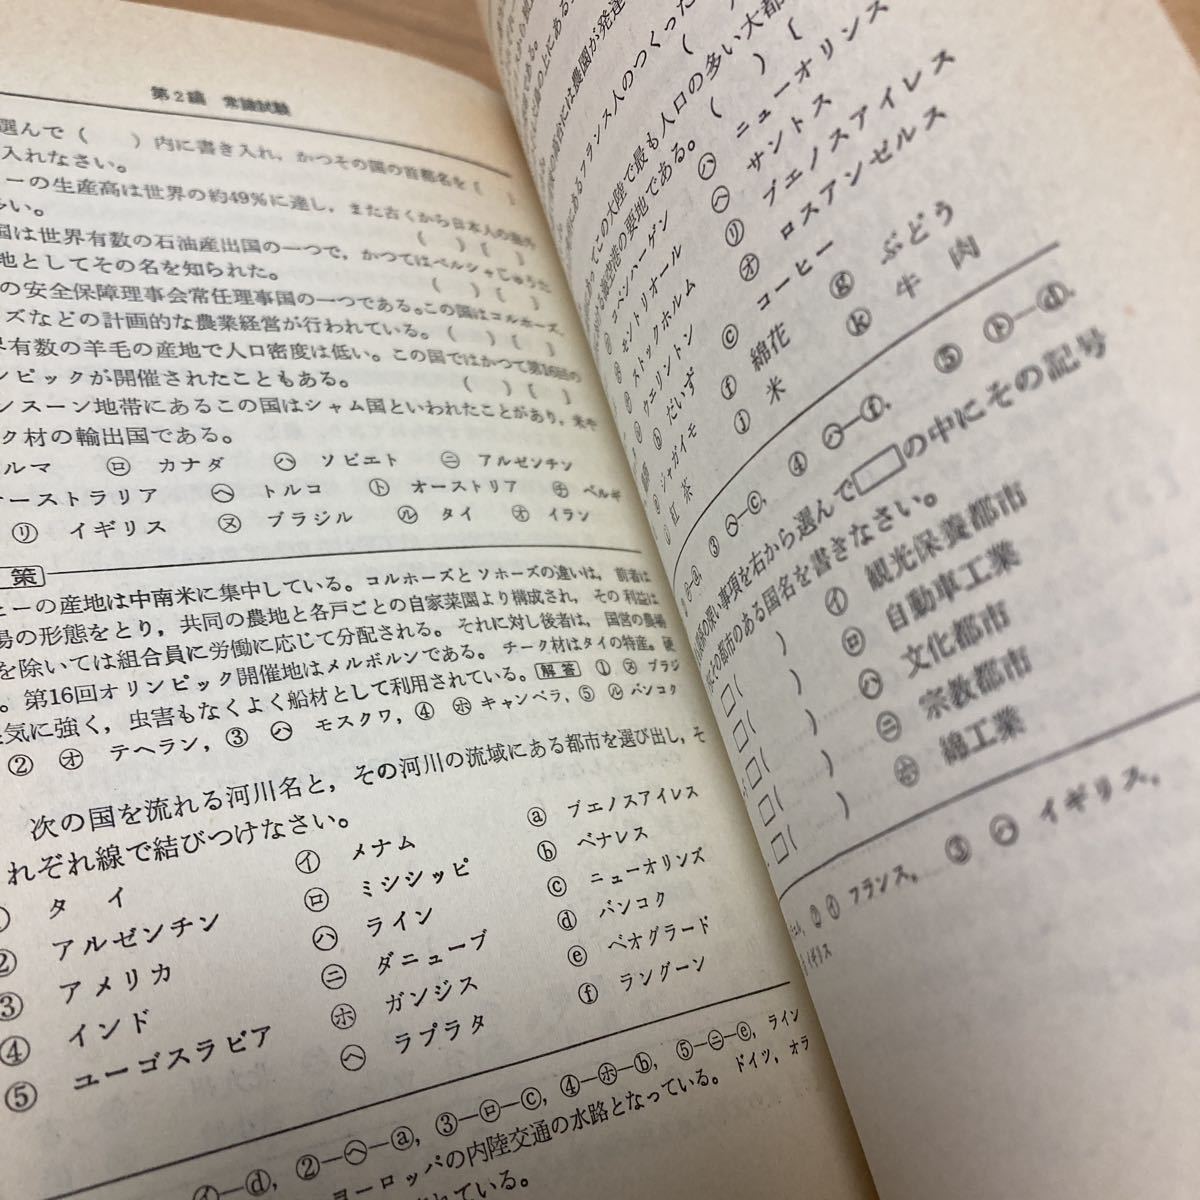 第2編 常識試験
選んで( )内に書き入れ,かつその国の首都名を〔
入れなさい。
ーの生産高は世界の約49%に達し,また古くから日本人の海外
多い。 ( )〔 〕
国は世界有数の石油産出国の一つで,かつてはペルシャじゅうた
地としてその名を知られた。 ( )〔 〕
の安全保障理事会常任理事国の一つである。この国はコルホーズ,
ズなどの計画的な農業経営が行われている。 ( )〔 〕
界有数の羊毛の産地で人口密度は低い。この国ではかつて第16回の
ンピックが開催されたこともある。 ( )〔 〕
ンスーン地帯にあるこの国はシャム国といわれたことがあり,米や
ク材の輸出国である。
ルマ ㋺ カナダ ㋩ ソビエト ㋥ アルゼンチン
オーストラリア ㋬ トルコ ㋣ オーストリア ㋠ ベルギ
㋷ イギリス ㋦ ブラジル ㋸ タイ ㋔ イラン
策
ヒーの産地は中南米に集中している。コルホーズとソホーズの違いは,前者は
場の形態をとり,共同の農地と各戸ごとの自家菜園より構成され,その利益は
を除いては組合員に労働に応じて分配される。それに対し後者は,国営の農場
。第16回オリンピック開催地はメルボルンである。チーク材はタイの特産。硬
湿気に強く,虫害もなくよく船材として利用されている。 解答 ① ㋦ ブラジ
② ㋔ テヘラン,③ ㋩ モスクワ,④ ㋭ キャンベラ,⑤ ㋸ バンコク
次の国を流れる河川名と,その河川の流域にある都市を選び出し,そ
れぞれ線で結びつけなさい。
タイ ㋑ メナム ⓐ ブエノスアイレス
② アルゼンチン ㋺ ミシシッピ ⓑ ベナレス
③ アメリカ ㋩ ライン ⓒ ニューオリンズ
④ インド ㋥ ダニューブ ⓓ バンコク
⑤ ユーゴスラビア ㋭ ガンジス ⓔ ベオグラード
㋬ ラプラタ ⓕ ラングーン
㋑―ⓓ,②―㋬―ⓐ,③―㋺―ⓒ,④―㋭―ⓑ,⑤―㋥―ⓔ,ライン
ヨーロッパの内陸交通の水路となっている。ドイツ,オラ
れている。
の高台には農園が発達
にあるフランス人のつくった
( )〔
てこの大陸で最も人口の多い大都
航空港の要地である。 ( )〔
コペンハーゲン ㋩ ニューオリンズ
モントリオール ㋬ サントス
ストックホルム ㋷ ブエノスアイレス
ウエリントン ㋔ ロスアンゼルス
ⓑ だいず ⓒ コーヒー ⓖ ぶどう
ジャガイモ ⓕ 綿花 ⓚ 牛肉
紅茶 ⓙ 米
③ ㋬―ⓒ,④ ㋩―ⓕ,⑤ ㋣―ⓓ,
係の深い事項を右から選んで□の中にその記号
にその都市のある国名を書きなさい。
□( ) ㋑ 観光保養都市
□( ) ㋺ 自動車工業
□( ) ㋩ 文化都市
□( ) ㋥ 宗教都市
□( ) ㋭ 綿工業
② ㋑ フランス,③ ㋩ イギリス,
イギリス